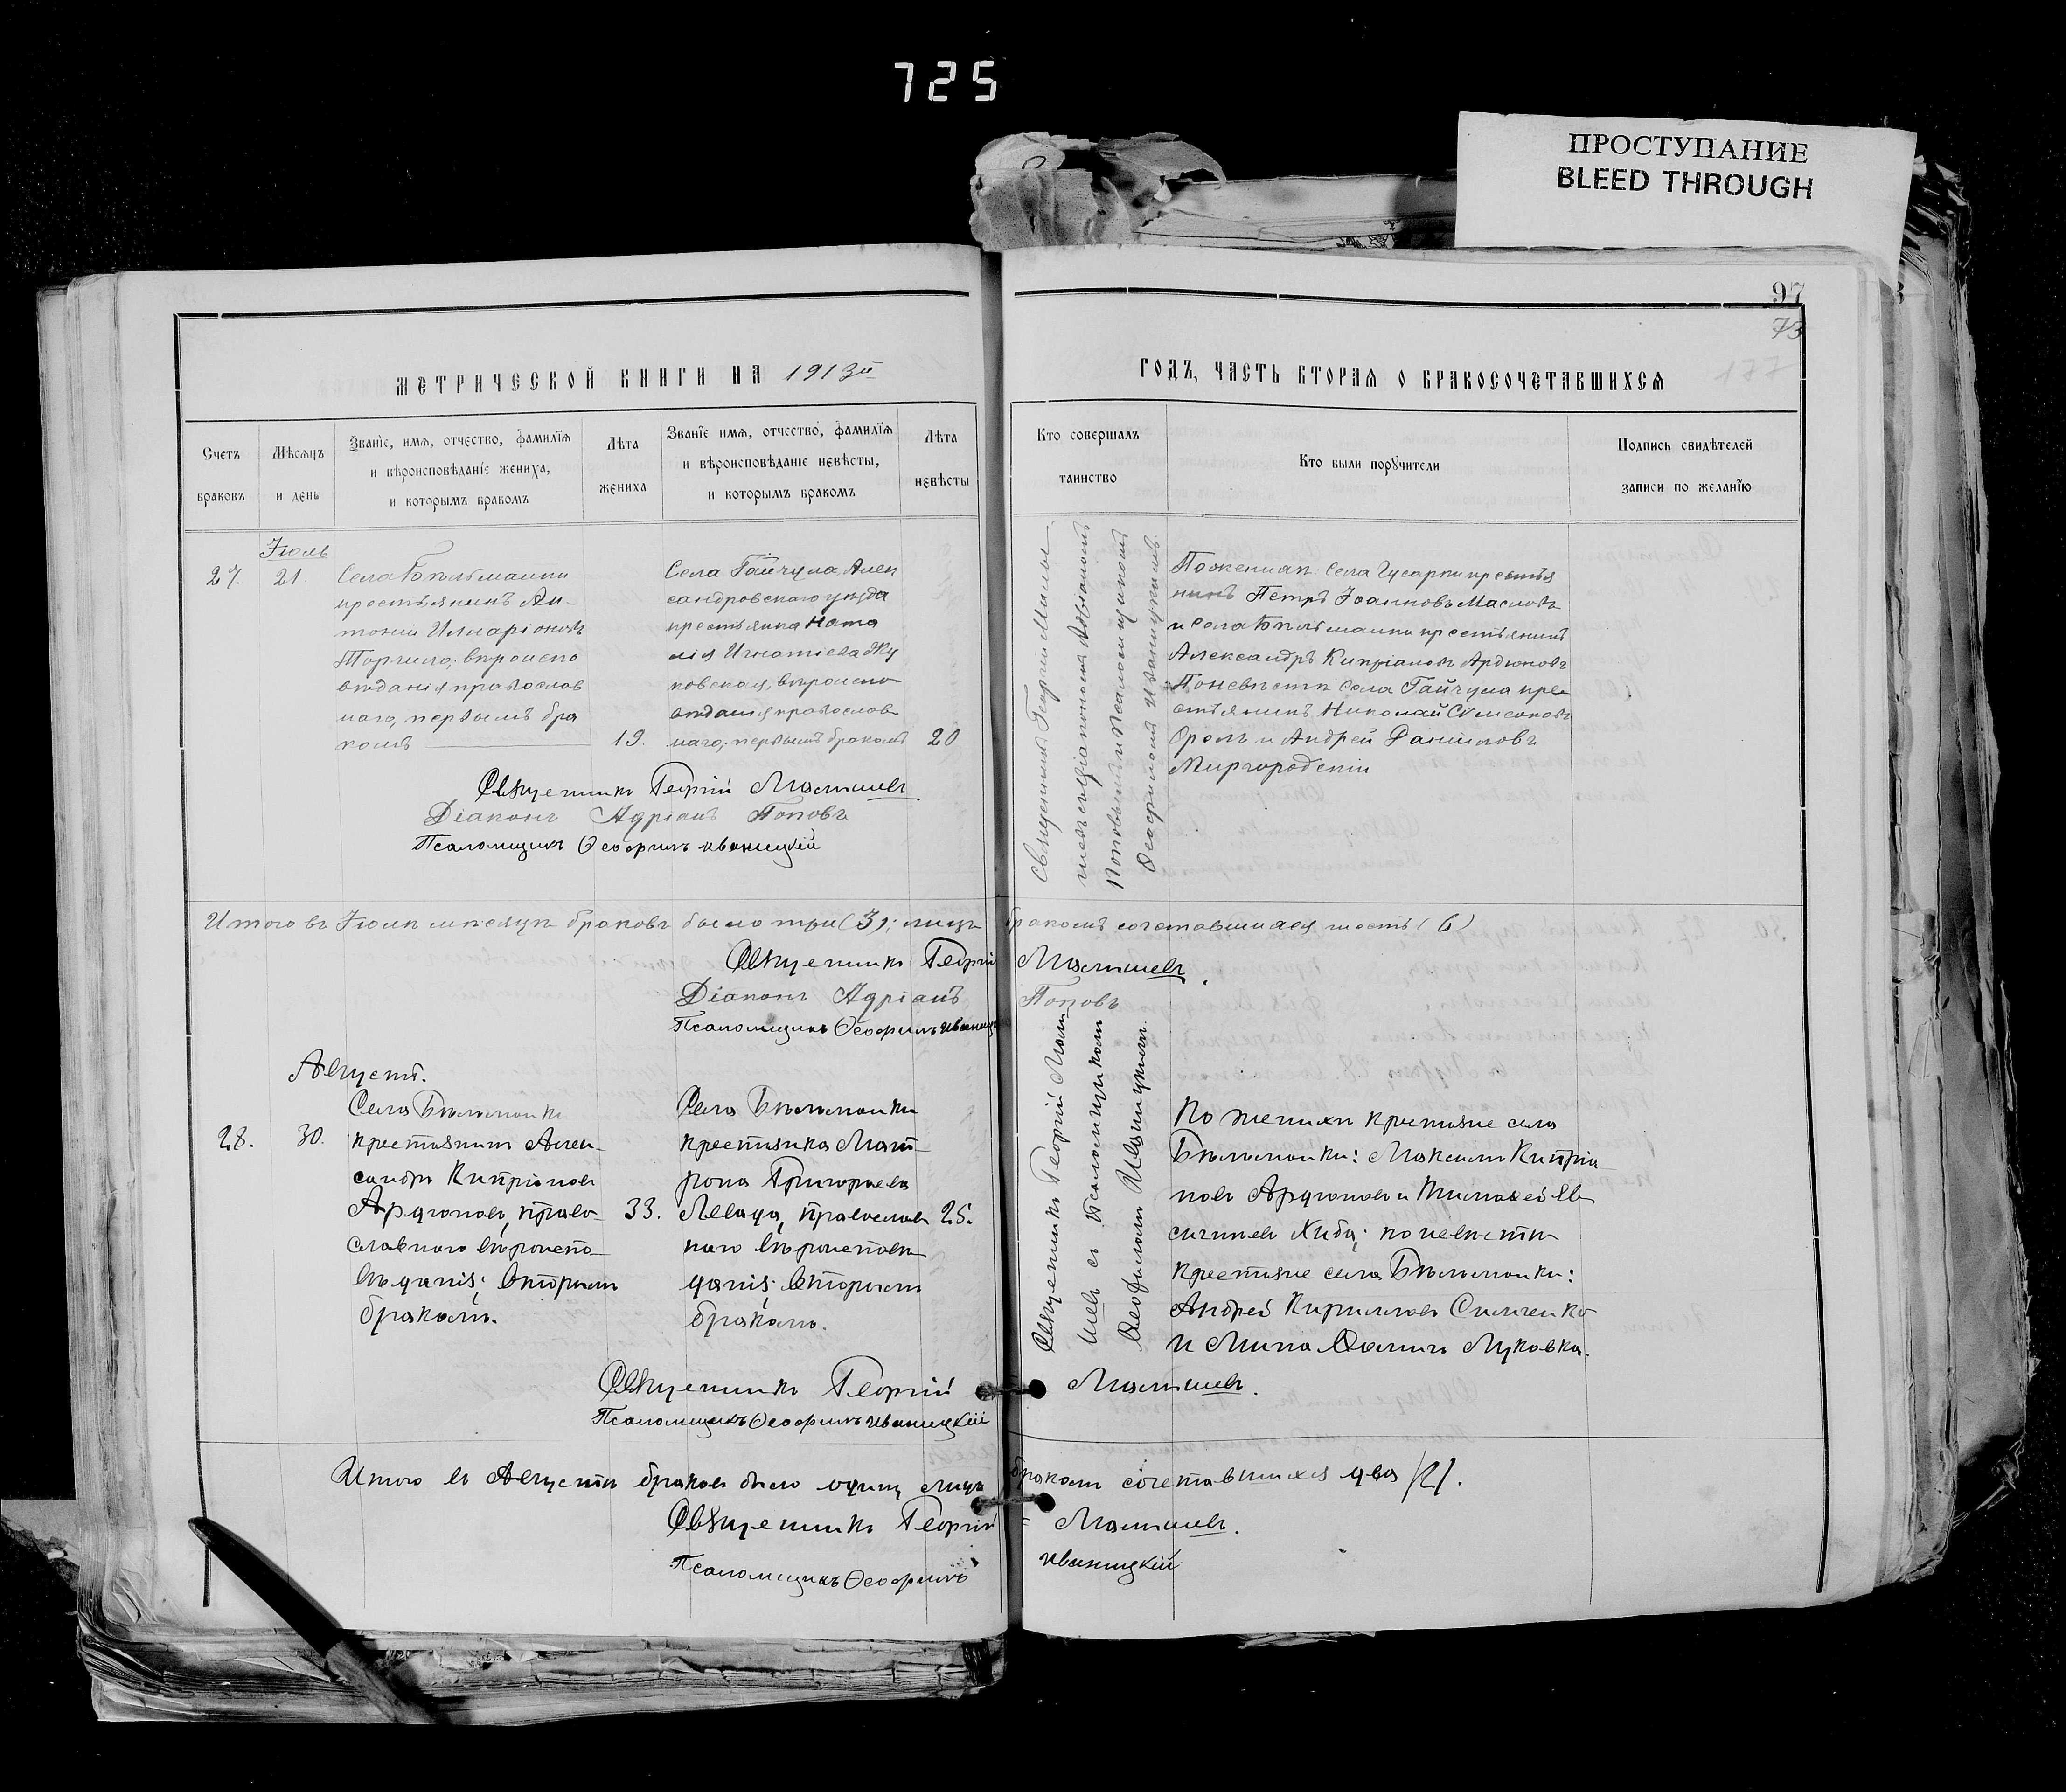 725
ПРОСТУПАНИЕ
BLEED THROUGH
97
73
177
МЕТРИЧЕСКОЙ КНИГИ НА 1913й
ГОДЪ, ЧАСТЬ ВТОРАЯ О БРАКОСОЧЕТАВШИХСЯ
Счетъ
браковъ
Мѣсяцъ
и день
Званіе, имя, отчество, фамилія
и вѣроисповѣданіе жениха,
и которымъ бракомъ
Лѣта
жениха
Званіе имя, отчество, фамилія
и вѣроисповѣданіе невѣсты,
и которымъ бракомъ
Лѣта
невѣсты
Кто совершалъ
таинство
Кто были поручители
Подпись свидѣтелей
записи по желанію
Іюль
27.
21.
Села Бѣльманки
крестьянинъ Ан-
тоній Иларіоновъ
Торчило, вѣроиспо
вѣданія православ
наго, первымъ бра
комъ
19.
Села Гайчула, Алек
сандровскаго уѣзда
крестьянка Ната
лія Игнатіева
ковская, вѣроиспо
вѣданія православ
наго, первымъ бракомъ
20
Священникъ Георгій Малы
шевъ съ діакономъ Адріаномъ
Поповымъ и псаломщикомъ
Ѳеофиломъ Иваницкимъ.
По женихѣ: села Гусарки крестья
нинъ Петръ Іоанновъ Масловъ
и села Бѣльманки крестьянинъ
Александръ Кипріановъ Ардюновъ
По невѣстѣ села Гайчула кре
стьянинъ Николай Симеоновъ
Орелъ и Андрей Даніиловъ
Миргородскій
Священникъ Георгій Малышевъ.
Діаконъ Адріанъ Поповъ
Псаломщикъ Ѳеофилъ Иваницкій
Итого въ Іюлѣ мѣсяцѣ браковъ было три (3); лицъ бракомъ сочетавшихся шесть (6)
Священникъ Георгій Малышевъ.
Діаконъ Адріанъ Поповъ
Псаломщикъ Ѳеофилъ Иваниц
Августъ.
28.
30.
Села Бѣльманки
крестьянинъ Алек-
сандръ Кипріановъ
Ардюновъ, право-
славнаго вѣроиспо-
вѣданія; вторымъ
бракомъ.
33.
Села Бѣльманки
крестьянка Мат-
рона Григорьева
Левада, православ
наго вѣроисповѣ
данія; вторымъ
бракомъ.
25.
Священникъ Георгій Малы
шевъ съ псаломщикомъ
Ѳеофиломъ Иваницкимъ.
По женихѣ крестьяне села
Бѣльманки: Максимъ Кипріа-
новъ Ардюновъ и Тимофей Ев-
сигніевъ Хиба; по невѣстѣ
крестьяне села Бѣльманки:
Андрей Кирилловъ Симченко
и Мина Луковка.
Священникъ Георгій Малышевъ.
Псаломщикъ Ѳеофилъ Иваницкій
Итого въ Августѣ браковъ было одинъ лицъ бракомъ сочетавшихся два /2/.
Священникъ Георгій Малышевъ.
Псаломщикъ Ѳеофилъ Иваницкій